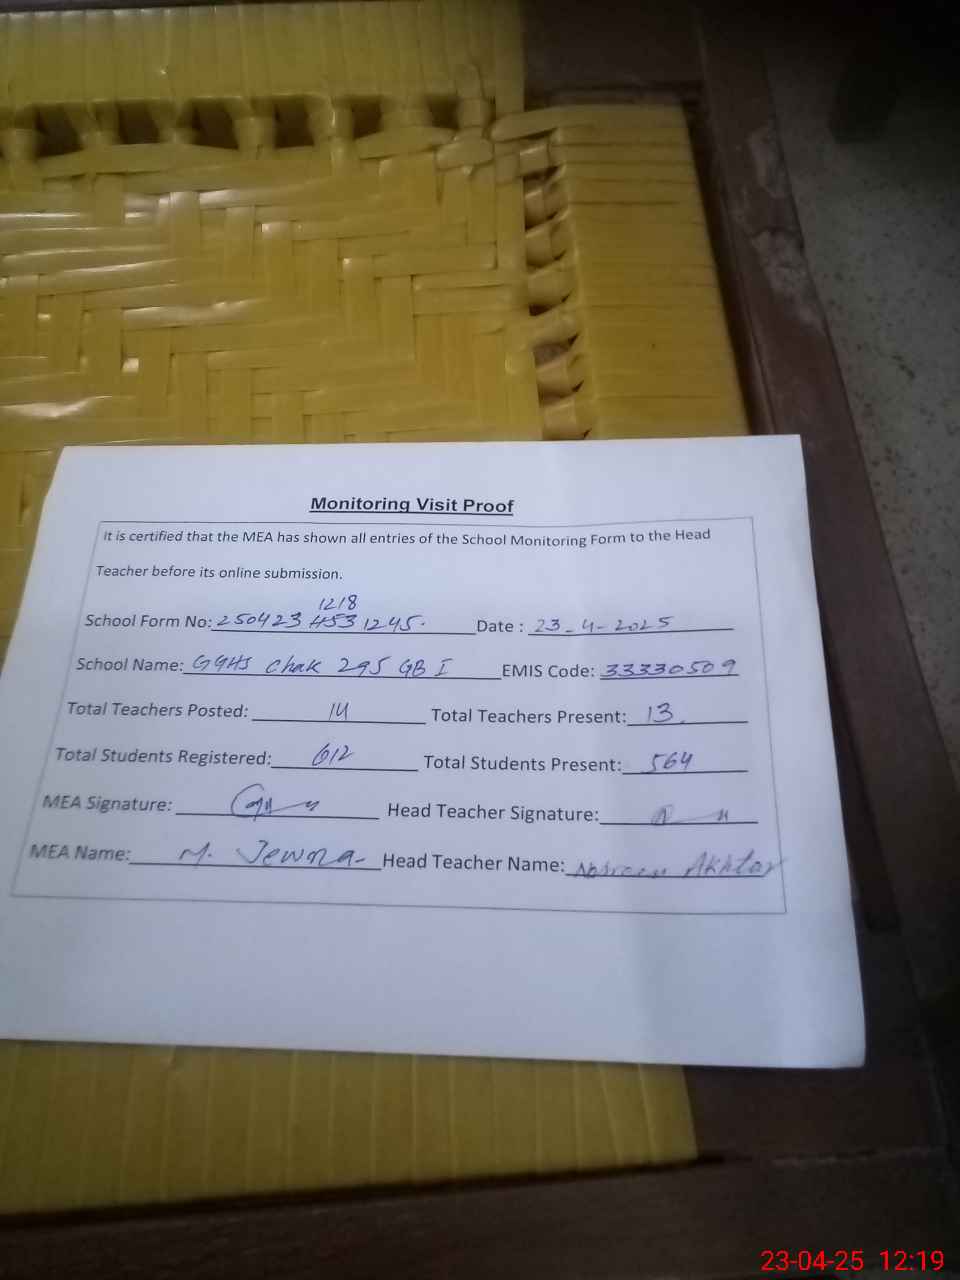 Monitoring Visit Proof
It is certified that the MEA has shown all entries of the School Monitoring Form to the Head
Teacher before its online submission.
1218
School Form No: 250423 4531245. Date : 23-4-2025
School Name: GGHS Chak 295 GB I EMIS Code: 33330509
Total Teachers Posted: 14 Total Teachers Present: 13
Total Students Registered: 612 Total Students Present: 564
MEA Signature: Head Teacher Signature:
MEA Name: M. Head Teacher Name: Nasreen Akhtar
23-04-25 12:19